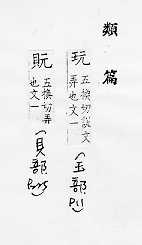 類篇
玩 五換切說文
弄也文一
(玉部 P11)
貦 五換切弄
也文一
(貝部